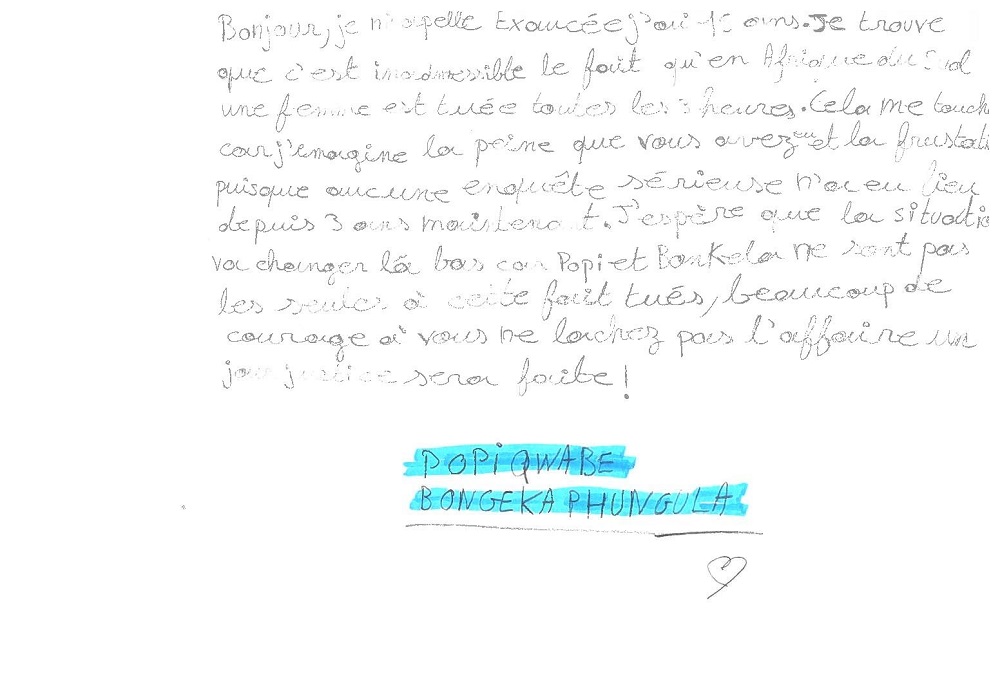 Bonjour, je m'apelle Exaucée j'ai 15 ans. Je trouve
que c'est inadmessible le fait qu'en Afrique du Sud
une femme est tuée toutes les 3 heures. Cela me touch
car j'emagine la peine que vous avez eu et la frustati
puisque aucune enquête sérieuse n'a eu lieu
depuis 3 ans maintenant. J'espère que la situatio
va changer là bas car Popi et Bonkela ne sont pas
les seules à cette fait tués, beaucoup de
courage à vous ne lachez pas l'affaire un
jour justice sera faite !
POPI QWABE
BONGEKA PHUNGULA